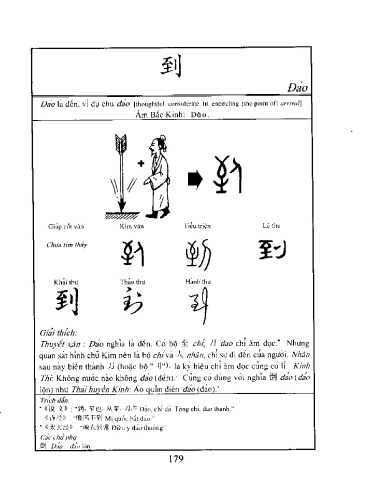 到
Đáo
Đáo là đến, ví dụ chu đáo [thoughtful, considerate lit encircling (the point of) arrival]
Âm Bắc Kinh: Dào.
Giáp cốt văn Kim văn Tiểu triện Lệ thư
Chưa tìm thấy
Khải thư Thảo thư Hành thư
到
Giải thích:
Thuyết văn: Đáo nghĩa là đến. Có bộ 至 chí, 刀 dao chỉ âm đọc." Nhưng
quan sát hình chữ Kim nên là bộ chí và 人 nhân, chỉ sự đi đến của người. Nhân
sau này biến thành 刀 (hoặc bộ "刂"), là ký hiệu chỉ âm đọc cũng có lí. Kinh
Thi: Không nước nào không đáo (đến). Cũng có dùng với nghĩa 倒 đảo (đảo
lộn) như Thái huyền Kinh: Áo quần điên đảo (đảo)."
Trích dẫn.
Đáo, chí dã, Tòng chí, đao thanh."
Mị quốc bất đáo."
Điên y đảo thường"
Các chữ phụ
倒 Đảo: đảo lộn
179